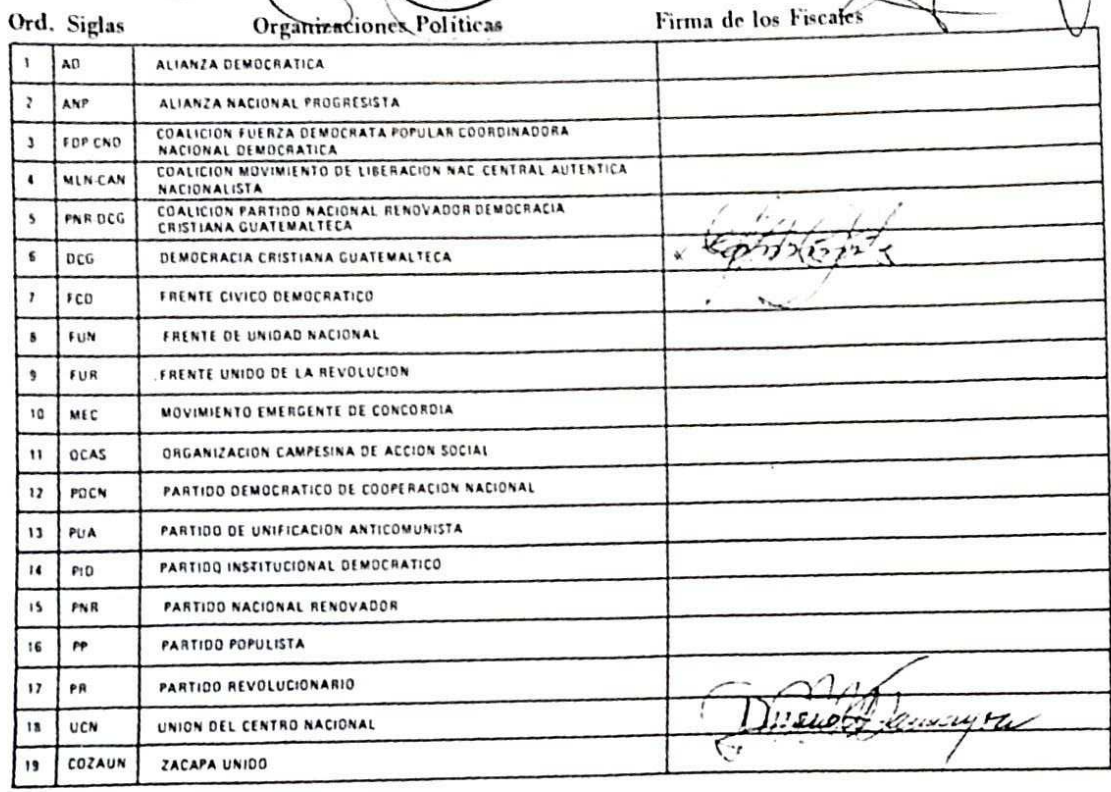 Ord. Siglas Organizaciones Políticas Firma de los Fiscales
1 AD ALIANZA DEMOCRATICA
2 ANP ALIANZA NACIONAL PROGRESISTA
3 FDP CND COALICION FUERZA DEMOCRATA POPULAR COORDINADORA
NACIONAL DEMOCRATICA
4 MLN-CAN COALICION MOVIMIENTO DE LIBERACION NAC. CENTRAL AUTENTICA
NACIONALISTA
5 PNR DCG COALICION PARTIDO NACIONAL RENOVADOR DEMOCRACIA
CRISTIANA GUATEMALTECA
6 DCG DEMOCRACIA CRISTIANA GUATEMALTECA x
7 FCD FRENTE CIVICO DEMOCRATICO
8 FUN FRENTE DE UNIDAD NACIONAL
9 FUR FRENTE UNIDO DE LA REVOLUCION
10 MEC MOVIMIENTO EMERGENTE DE CONCORDIA
11 OCAS ORGANIZACION CAMPESINA DE ACCION SOCIAL
12 PDCN PARTIDO DEMOCRATICO DE COOPERACION NACIONAL
13 PUA PARTIDO DE UNIFICACION ANTICOMUNISTA
14 PID PARTIDO INSTITUCIONAL DEMOCRATICO
15 PNR PARTIDO NACIONAL RENOVADOR
16 PP PARTIDO POPULISTA
17 PR PARTIDO REVOLUCIONARIO
18 UCN UNION DEL CENTRO NACIONAL
19 COZAUN ZACAPA UNIDO